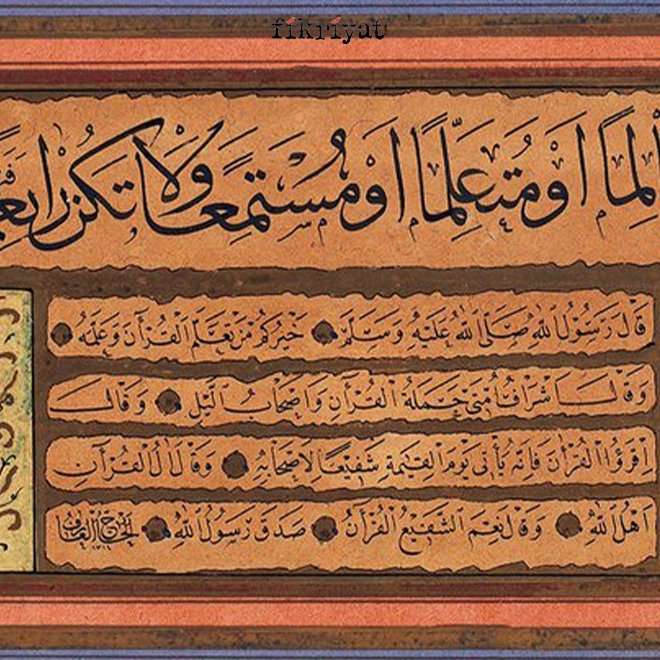 fikriyat
لمًا اَوْ مُتَعَلِّمًا اَوْ مُسْتَمِعًا وَلَا تَكُنْ رَابِعًا
قَالَ رَسُولُ اللهِ صَلَّى اللهُ عَلَيْهِ وَسَلَّمَ خَيْرُكُمْ مَنْ تَعَلَّمَ الْقُرْاٰنَ وَعَلَّمَهُ
وَقَالَ اَشْرَافُ اُمَّتِى حَمَلَةُ الْقُرْاٰنِ وَاَصْحَابُ الَّيْلِ وَقَالَ
اِقْرَؤُا الْقُرْاٰنَ فَاِنَّهُ يَأْتِى يَوْمَ الْقِيٰمَةِ شَفِيعًا لِاَصْحَابِهِ وَقَالَ اَهْلُ الْقُرْاٰنِ
اَهْلُ اللهِ وَقَالَ نِعْمَ الشَّفِيعُ الْقُرْاٰنُ صَدَقَ رَسُولُ اللهِ